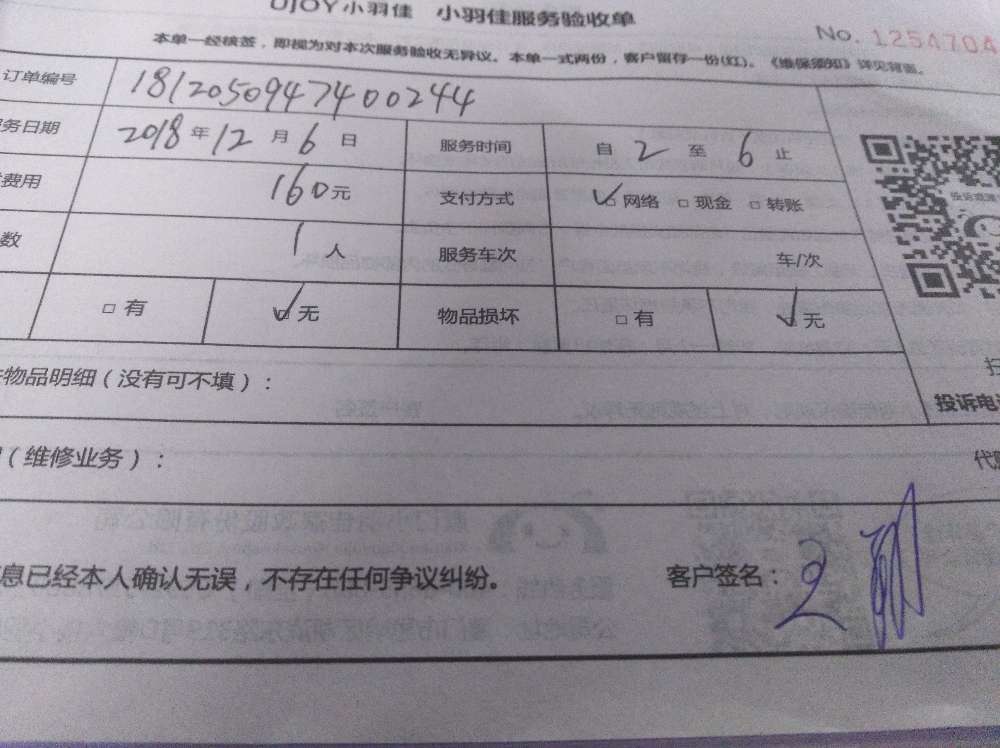 UJOY小羽佳 小羽佳服务验收单
No. 1254704
本单一经核签，即视为对本次服务验收无异议。本单一式两份，客户留存一份(红)。《维保须知》详见背面。
订单编号 1812050947400244
务日期 2018年12月6日 服务时间 自2至6止
费用 160元 支付方式 ☑网络 □现金 □转账
数 1人 服务车次 车/次
□有 ☑无 物品损坏 □有 ☑无
物品明细（没有可不填）：
投诉电
（维修业务）：
息已经本人确认无误，不存在任何争议纠纷。 客户签名：